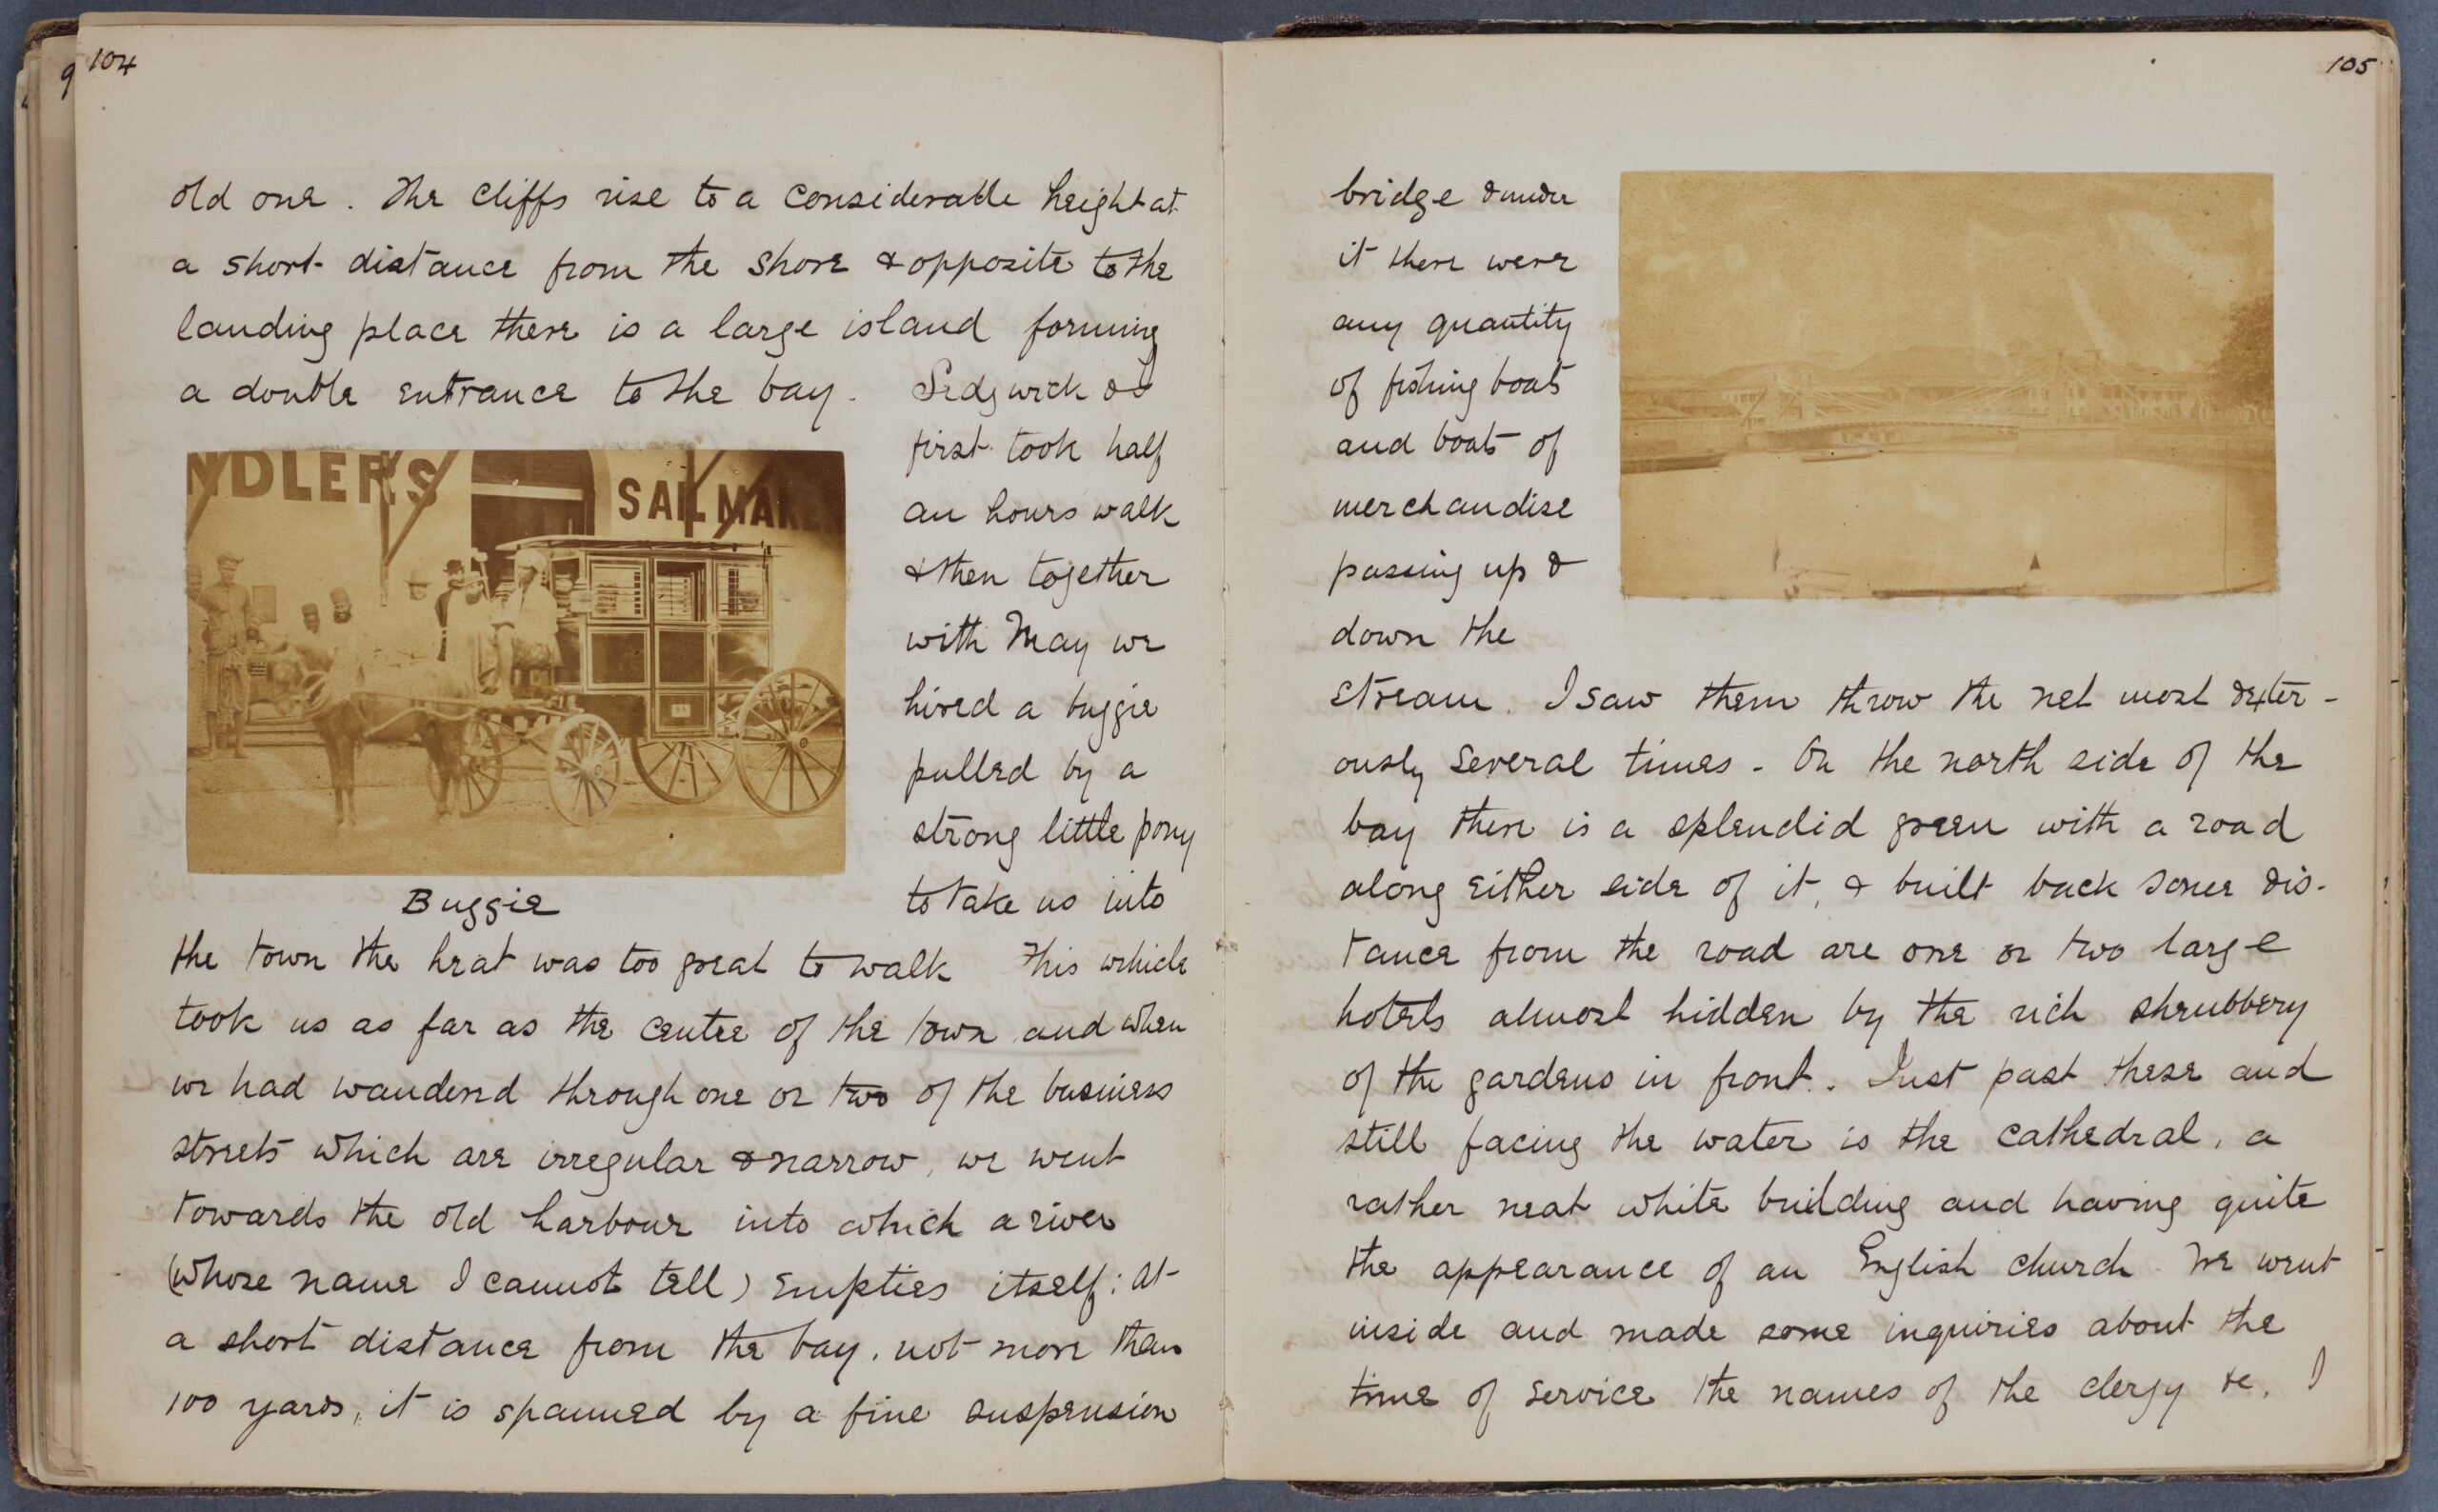 104
old one. The cliffs rise to a considerable height at
a short distance from the shore & opposite to the
landing place there is a large island forming
a double entrance to the bay. Sedgwick & I
first took half
an hours walk
& then together
with May we
hired a buggie
pulled by a
strong little pony
to take us into
NDLERS
SAILMA
Buggie
the town the heat was too great to walk This vehicle
took us as far as the centre of the town and when
we had wandered through one or two of the business
streets which are irregular & narrow, we went
towards the old harbour into which a river
(whose name I cannot tell) empties itself: at
a short distance from the bay, not more than
100 yards, it is spanned by a fine suspension
105
bridge & under
it there were
any quantity
of fishing boats
and boats of
merchandise
passing up &
down the
stream. I saw them throw the net most dexter-
ously several times. On the north side of the
bay there is a splendid green with a road
along either side of it, & built back some dis-
tance from the road are one or two large
hotels almost hidden by the rich shrubbery
of the gardens in front. Just past these and
still facing the water is the cathedral, a
rather neat white building and having quite
the appearance of an English church. We went
inside and made some inquiries about the
time of service the names of the clergy &c. I